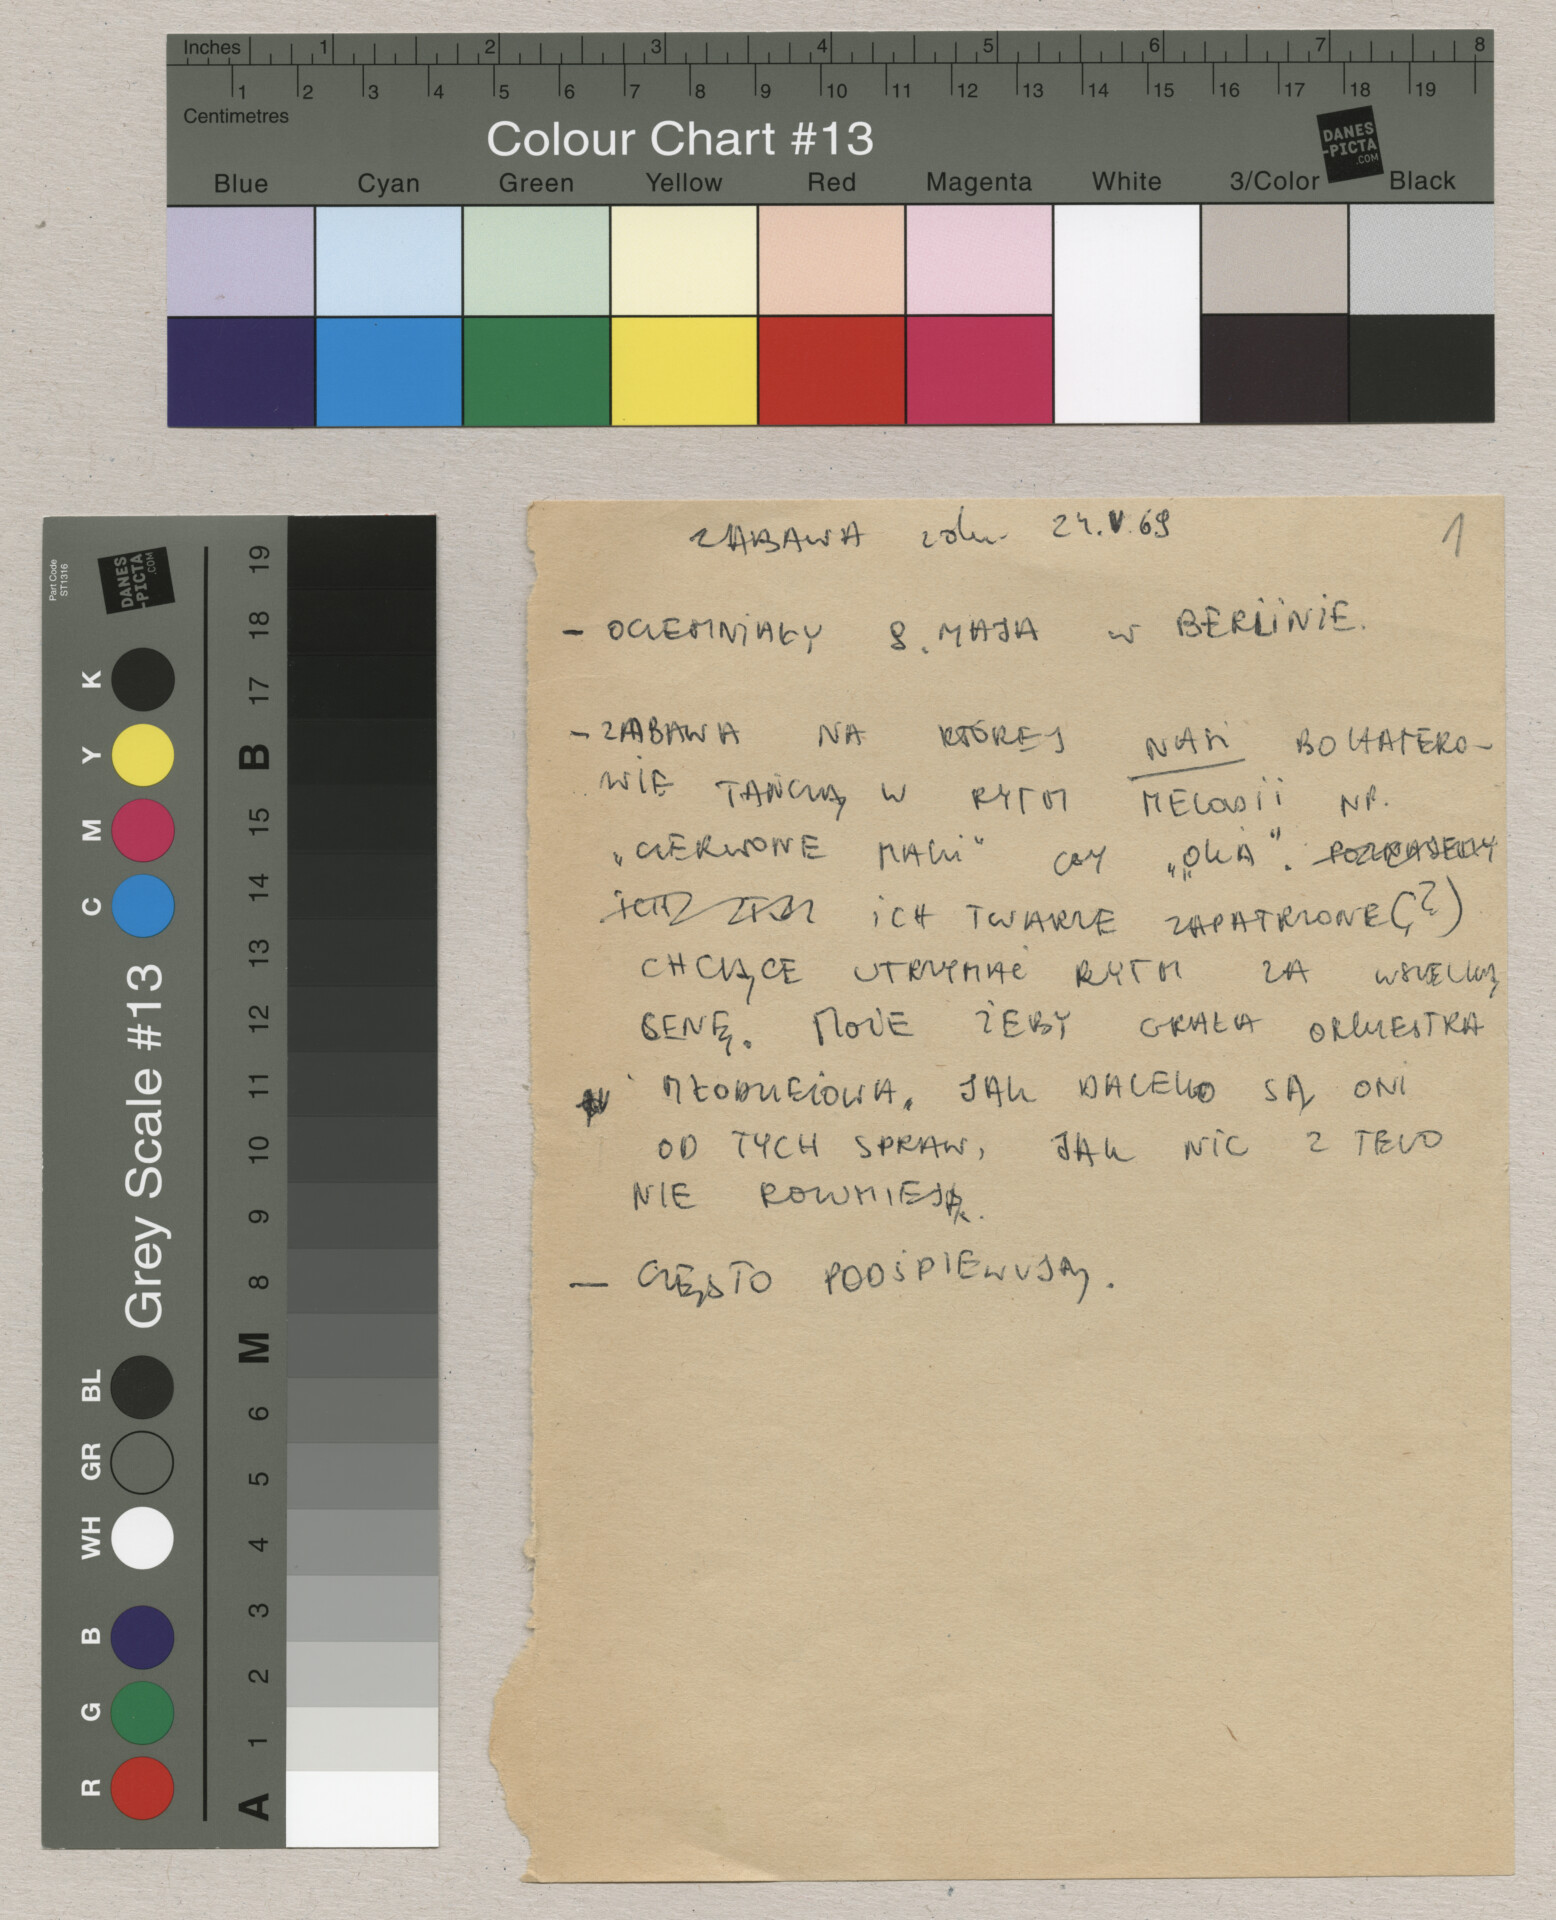 Inches 1 2 3 4 5 6 7 8
1 2 3 4 5 6 7 8 9 10 11 12 13 14 15 16 17 18 19
Centimetres
Colour Chart #13
DANES
-PICTA
.COM
Blue Cyan Green Yellow Red Magenta White 3/Color Black
Part Code
ST1316
DANES
-PICTA
.COM
Grey Scale #13
K Y M C BL GR WH B G R
19 18 17 B 15 14 13 12 11 10 9 8 M 6 5 4 3 2 1 A
ZABAWA 24.V.69
1
- OCIEMNIAŁY 8. MAJA w BERLINIE.
- ZABAWA NA KTÓREJ NASI BOHATERO-
WIE TAŃCZĄ W RYTM MELODII NP.
„CZERWONE MAKI" CZY „OKA".
ICH TWARZE ZAPATRZONE (?)
CHCĄCE UTRZYMAĆ RYTM ZA WSZELKĄ
CENĘ. MOŻE ŻEBY GRAŁA ORKIESTRA
MŁODZIEŻOWA. JAK DALEKO SĄ ONI
OD TYCH SPRAW, JAK NIC Z TEGO
NIE ROZUMIEJĄ.
— CZĘSTO PODŚPIEWUJĄ.